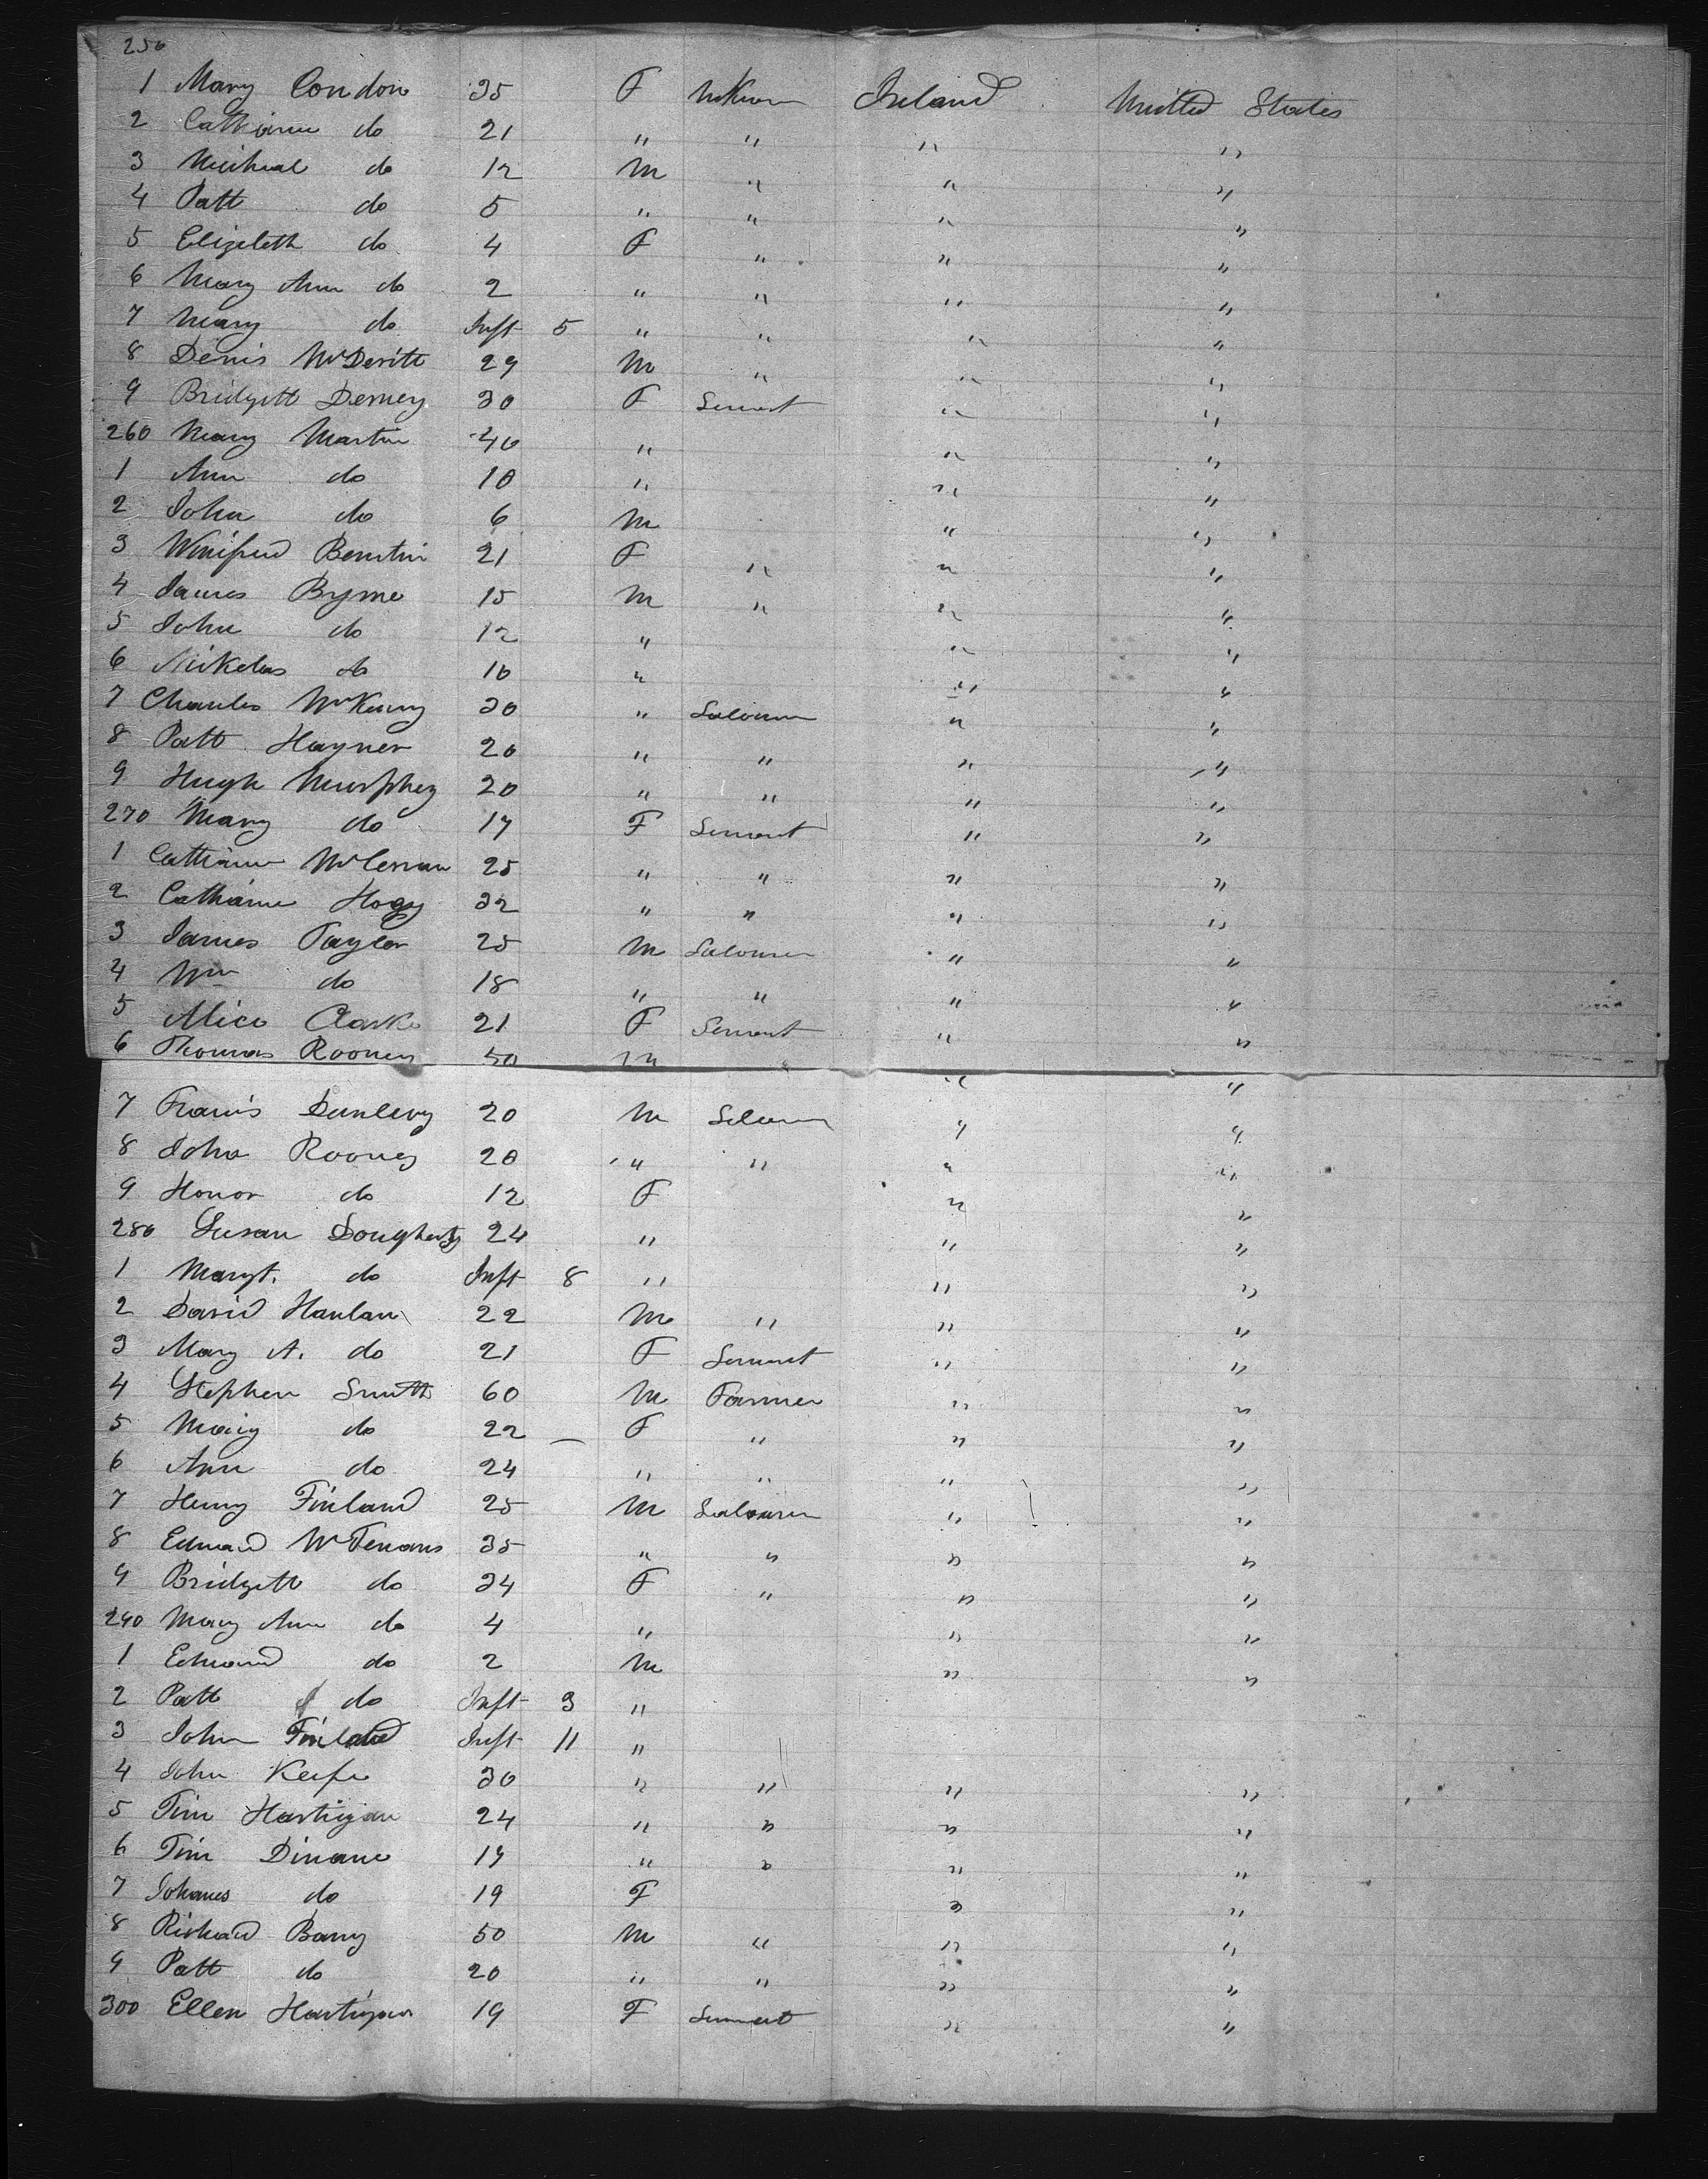 250
1 Mary Condon 35 F Ireland United States
2 Catharine do 21 " " " "
3 Micheal do 12 M " " "
4 Patt do 5 " " " "
5 Elizebeth do 4 F " " "
6 Mary Ann do 2 " " " "
7 Mary do Inft 5 " " " "
8 Denis McDevitt 29 M " " "
9 Bridgett 30 F Servant " "
260 Mary Martin 40 " " "
1 Ann do 10 " " "
2 John do 6 M " "
3 Winifred 21 F " " "
4 James Byrne 15 M " " "
5 John do 12 " " "
6 Nikolas do 10 " " "
7 Charles 30 " Labourer " "
8 Patt 20 " " " "
9 Hugh Murphey 20 " " " "
270 Mary do 17 F Servant " "
1 Catharine 25 " " " "
2 Catharine 32 " " " "
3 James Taylor 25 M Labourer " "
4 Wm do 18 " " " "
5 Alice Clarke 21 F Servant " "
6 Thomas Rooney 50 M " "
7 Francis Dunlevy 20 M Labourer " "
8 John Rooney 20 " " " "
9 Honor do 12 F " "
280 Susan Dougherty 24 " " "
1 Margt. do Inft 8 " " "
2 David Hanlan 22 M " " "
3 Mary A. do 21 F Servant " "
4 Stephen Smith 60 M Farmer " "
5 Mary do 22 — F " " "
6 Ann do 24 " " " "
7 Henry Finland 25 M Labourer " "
8 Edward 35 " " " "
9 Bridgett do 34 F " " "
290 Mary Ann do 4 " " "
1 Edward do 2 M " "
2 Patt do Inft 3 "
3 John Inft 11 "
4 John Keefe 30 " " " "
5 Tim Hartigan 24 " " " "
6 Tim Dinane 19 " " " "
7 do 19 F " "
8 Richard Barry 50 M " " "
9 Patt do 20 " " " "
300 Ellen Hartigan 19 F Servant " "